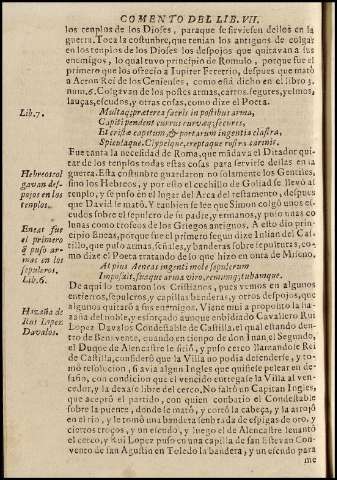 COMENTO DEL LIB. VII.
los tenplos de los Dioses, paraque se sirviesen dellos en la
guerra. Toca la costunbre, que tenian los antiguos de colgar
en los tenplos de los Dioses los despojos que quitavan a sus
enemigos, lo qual tuvo principio de Romulo, porque fue el
primero que los ofrecio a Iupiter Feretrio, despues que matò
a Acron Rei de los Genienses, como està dicho en el libro 3.
num. 6. Colgavan de los postes armas, carros, segures, yelmos,
lanças, escudos, y otras cosas, como dize el Poeta.
Lib. 7.
Multaq; præterea sacris in postibus arma,
Captivi pendent currus curvæq; secures,
Et cristæ capitum, & portarum ingentia claustra,
Spiculaque, Clypeique, ereptaque rostra carinis.
Fue tanta la necesidad de Roma, que mãdava el Ditador quitar
de los tenplos todas estas cosas para servirse dellas en la
guerra. Esta costunbre guardaron no solamente los Gentiles,
Hebreos colgavan
despojos en los
tenplos.
sino los Hebreos, y por esto el cuchillo de Goliad se llevò al
tenplo, y se puso en el lugar del Arca del testamento, despues
que David le matò. Y tanbien se lee que Simon colgò unos escudos
sobre el sepulcro de su padre, y ermanos, y puso unas colunas
como trofeos de los Griegos antiguos. A esto diò principio
Eneas fue
el primero
q̃ puso armas
en los
sepulcros.
Lib. 6.
Eneas, porque fue el primero segun dize Iulian del Castillo,
que puso armas, señales, y banderas sobre sepulturas, como
dize el Poeta tratando de lo que hizo en onra de Miseno.
At pius Aeneas ingenti mole sepulcrum
Imposuit, suaque arma viro, remumq; tubamque.
De aqui lo tomaron los Cristianos, pues vemos en algunos
entierros, sepulcros, y capillas banderas, y otros despojos, que
Hazaña de
Rui Lopez
Davalos.
algunos quitaron a sus enemigos. Viene mui a proposito la hazaña
del noble, y esforçado aunque enbidiado Cavallero Rui
Lopez Davalos Condestable de Castilla, el qual estando dentro
de Benavente, quando en tienpo de don Iuan el Segundo,
el Duque de Alencastre le sitiò, y pidio cerco llamandose Rei
de Castilla, considerò que la Villa no podia defenderse, y tomò
resolucion, si avia algun Ingles que quisiese pelear en desafio,
con condicion que el vencido entregase la Villa al vencedor,
y la dexase libre del cerco. No faltò un Capitan Ingles,
que aceptò el partido, con quien conbatio el Condestable
sobre la puente, donde le matò, y cortò la cabeça, y la arrojò
en el rio, y le tomò una bandera senbrada de espigas de oro, y
ciertos troços, y un escudo, y luego el de Alencastre levantò
el cerco, y Rui Lopez puso en una capilla de san Estevan Convento
de san Agustin en Toledo la bandera, y un escudo para
me